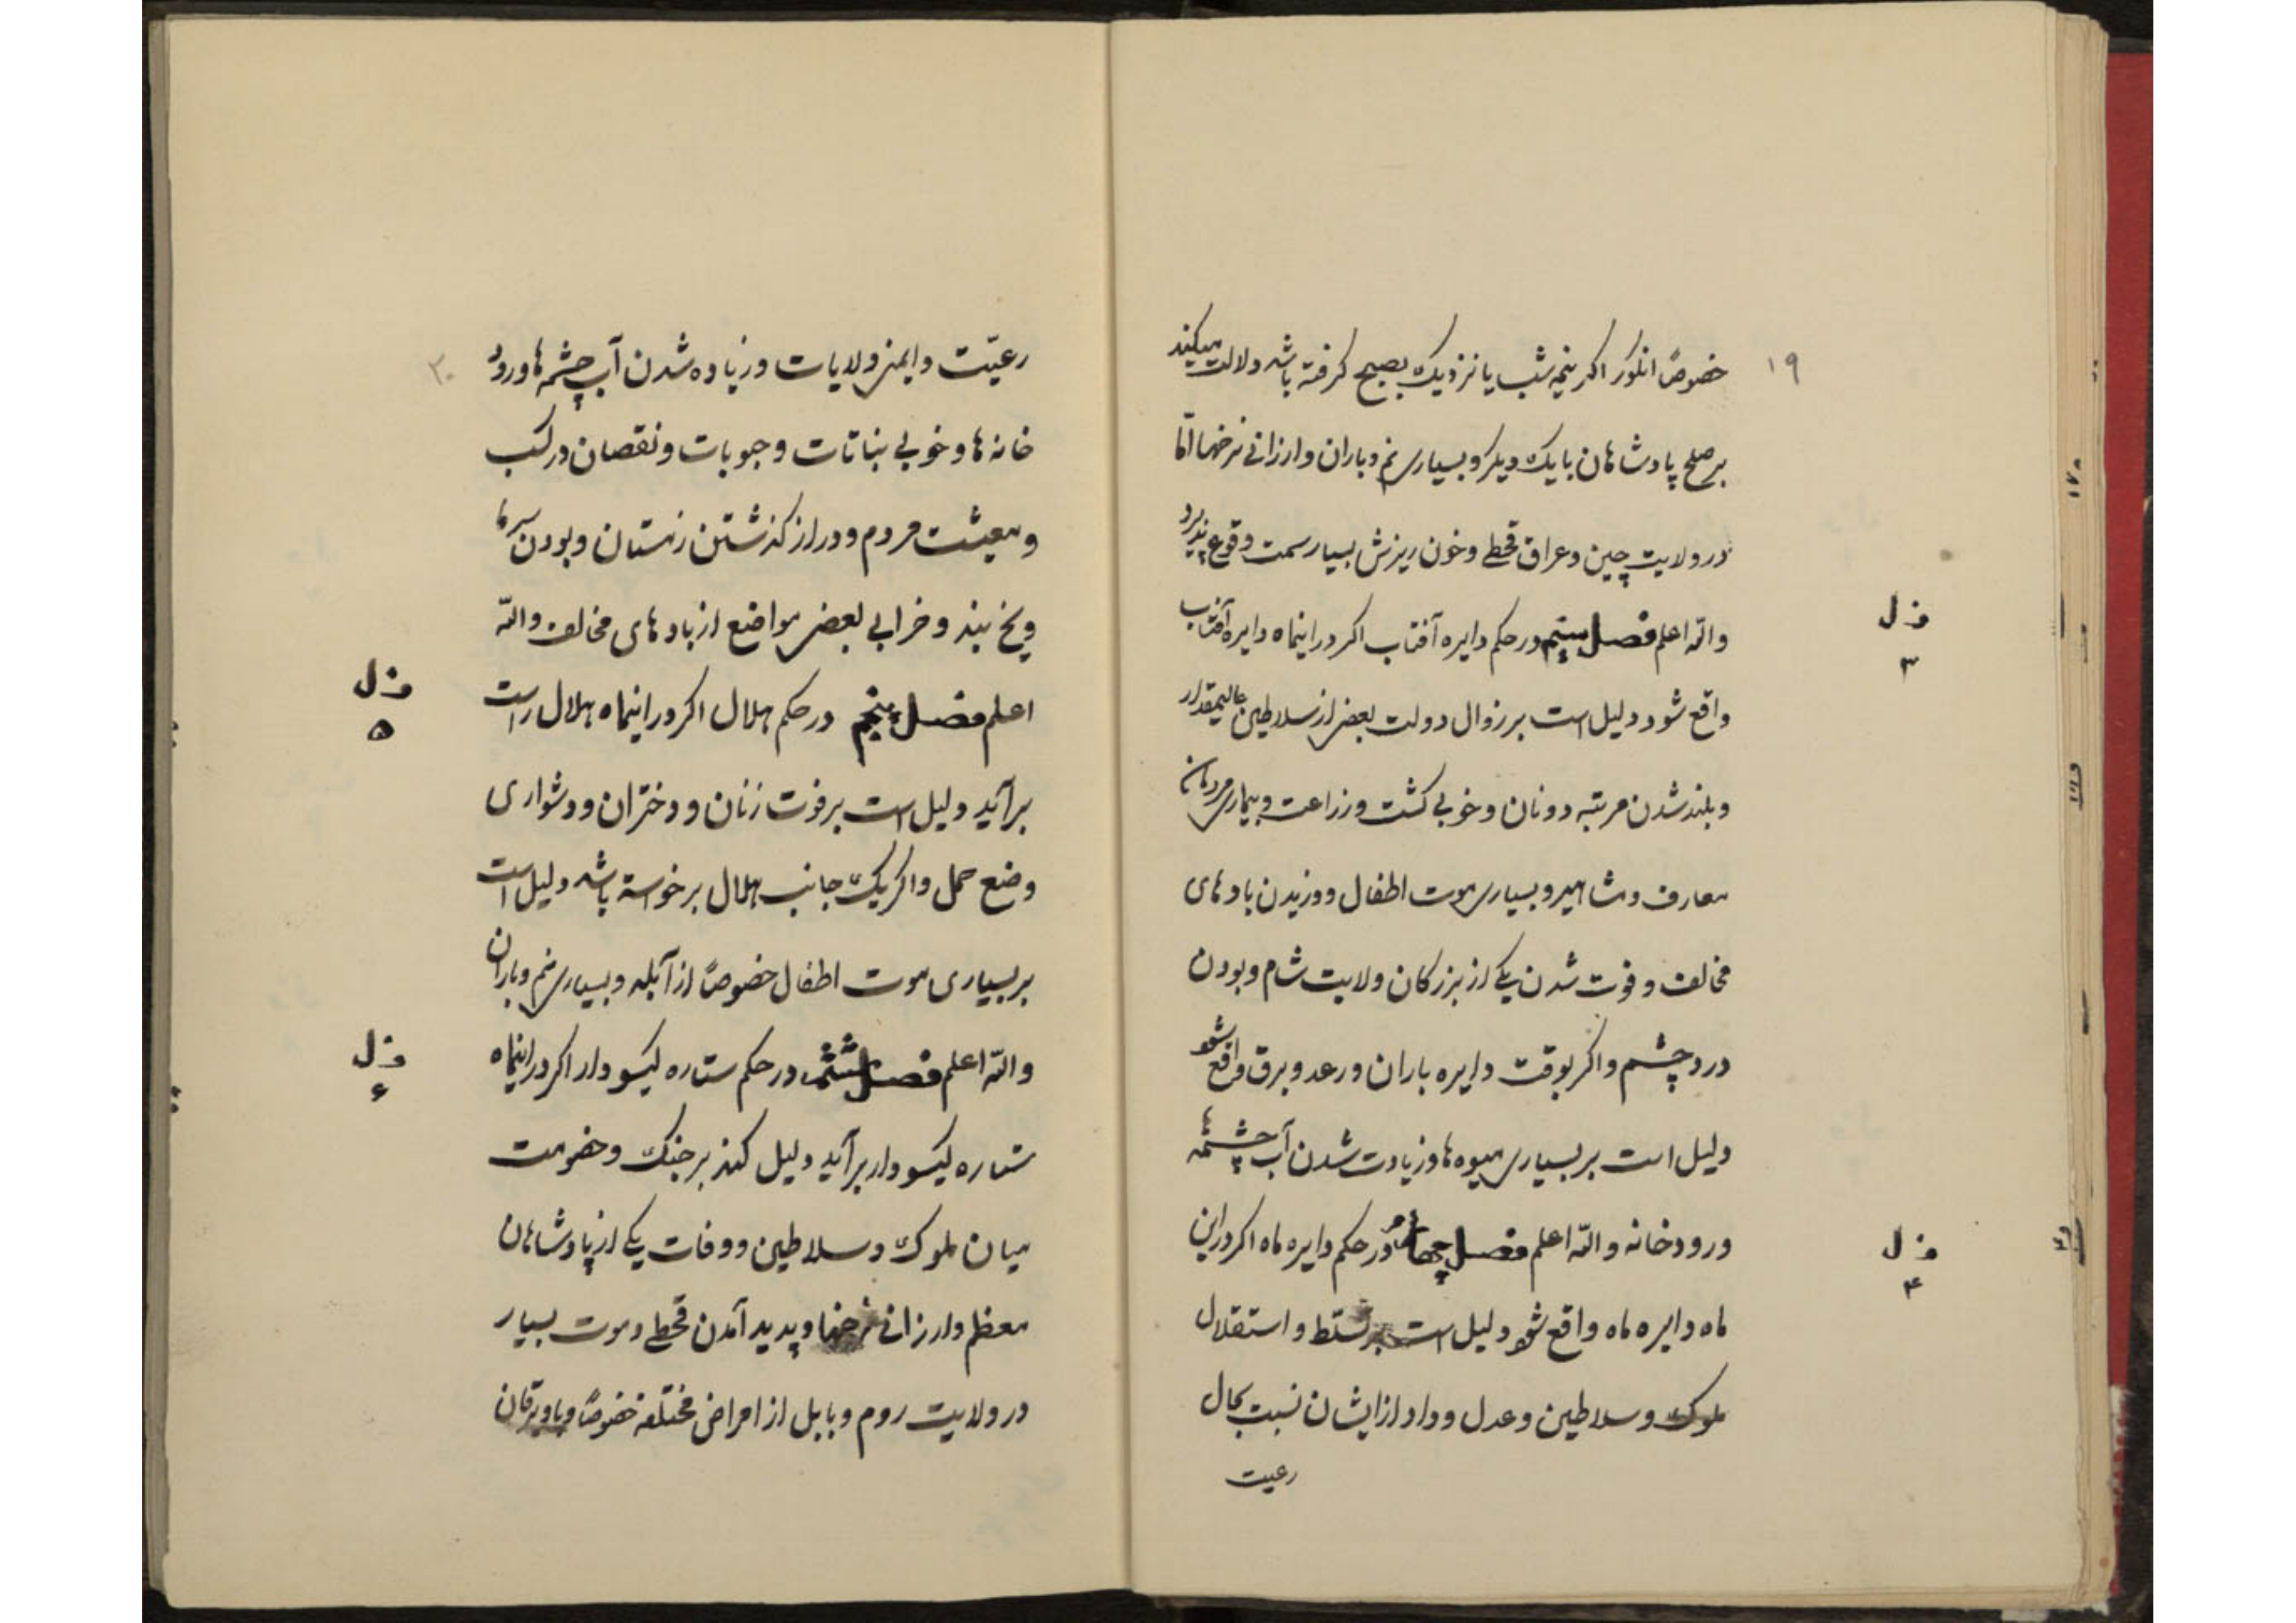 ۱۹
خصوصاً انگور اکر نیمه شب یا نزدیک بصبح کرفته باشد دلالت میکند
بر صلح پادشاهان با یک دیکر و بسیاری نم و باران و ارزانی نرخها امّا
در ولایت چین و عراق قحطی و خون ریزش بسیار سمت وقوع پذیرد
واللّه اعلم فصل سیّم در حکم دایره آفتاب اکر در اینماه دایره آفتاب
فصل
۳
واقع شود دلیل است بر زوال دولت بعضی از سلاطین عالیمقدار
و بلند شدن مرتبه دونان و خوبی کشت و زراعت و بیماری مردمان
معارف و مشاهیر و بسیاری موت اطفال و وزیدن بادهای
مخالف و فوت شدن یکی از بزرکان ولایت شام و بودن
درد چشم و اکر بوقت دایره باران و رعد و برق واقع شود
دلیل است بر بسیاری میوه ها و زیادت شدن آب چشمه ها
و رودخانه واللّه اعلم فصل چهارم در حکم دایره ماه اکر در این
فصل
۴
ماه دایره ماه واقع شود دلیل است بر تسلّط و استقلال
ملوک و سلاطین و عدل و داد از ایشان نسبت بحال
رعیت
۲۰
رعیّت و ایمنی ولایات و زیاده شدن آب چشمه ها و رود
خانه ها و خوبی بناتات و حبوبات و نقصان در کسب
و معیشت مردم و دراز کذشتن زمستان و بودن سرما
و یخ بند و خرابی بعضی مواضع از بادهای مخالف واللّه
اعلم فصل پنجم در حکم هلال اکر در اینماه هلال راست
فصل
۵
برآید دلیل است بر فوت زنان و دختران و دشواری
وضع حمل و اکر یک جانب هلال برخواسته باشد دلیل است
بر بسیاری موت اطفال خصوصاً از آبله و بسیاری نم و باران
واللّه اعلم فصل ششم در حکم ستاره کیسو دار اکر در اینماه
فصل
۶
ستاره کیسو دار برآید دلیل کند بر جنک و خصومت
میان ملوک و سلاطین و وفات یکی از پادشاهان
معظم و ارزانی نرخها و پدید آمدن قحطی و موت بسیار
در ولایت روم و بابل از امراض مختلفه خصوصاً وبا و یرقان